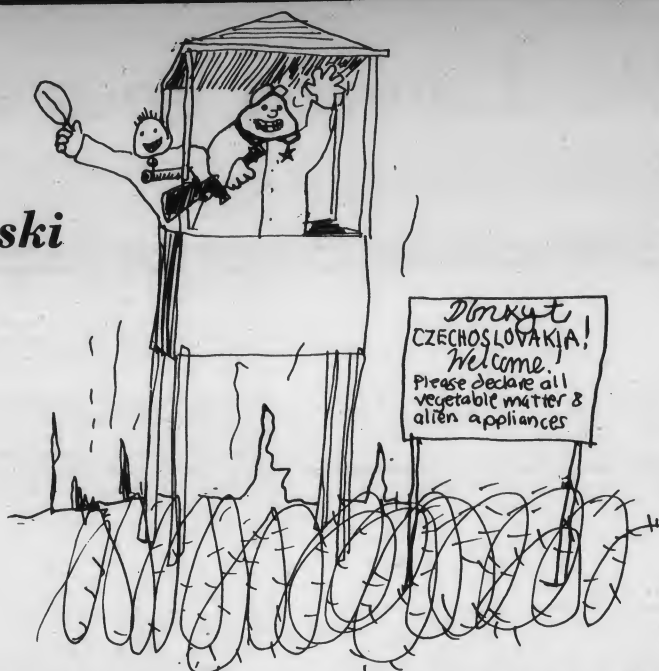 ski
CZECHOSLOVAKIA!
Welcome.
Please declare all
vegetable matter &
alien appliances